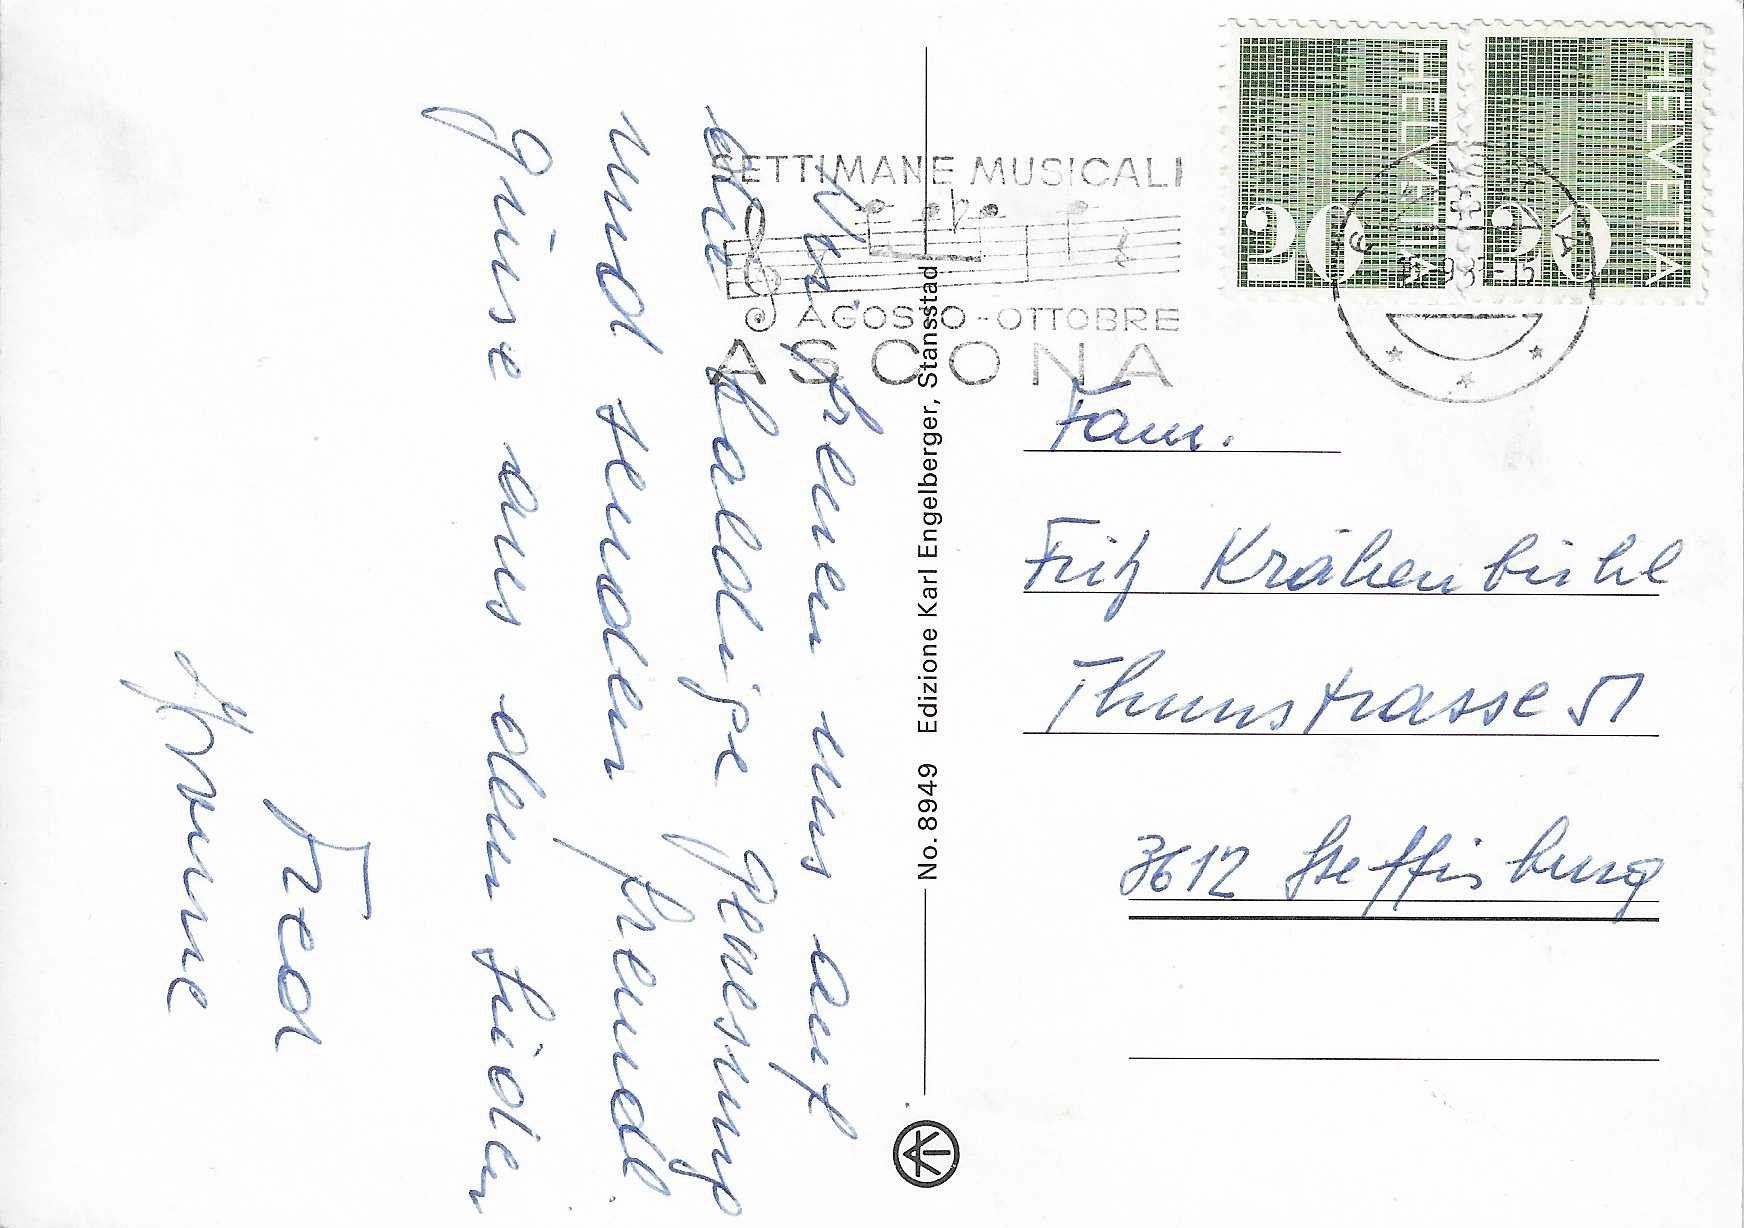 SETTIMANE MUSICALI
AGOSTO - OTTOBRE
ASCONA
HELVETIA 20
HELVETIA 20
Wir freuen uns auf
die baldige Genesung
und senden freundl.
Grüsse aus dem Süden
Fred
Yvonne
No. 8949 Edizione Karl Engelberger, Stansstad
Fam.
Fritz Krähenbühl
Thunstrasse 51
3612 Steffisburg